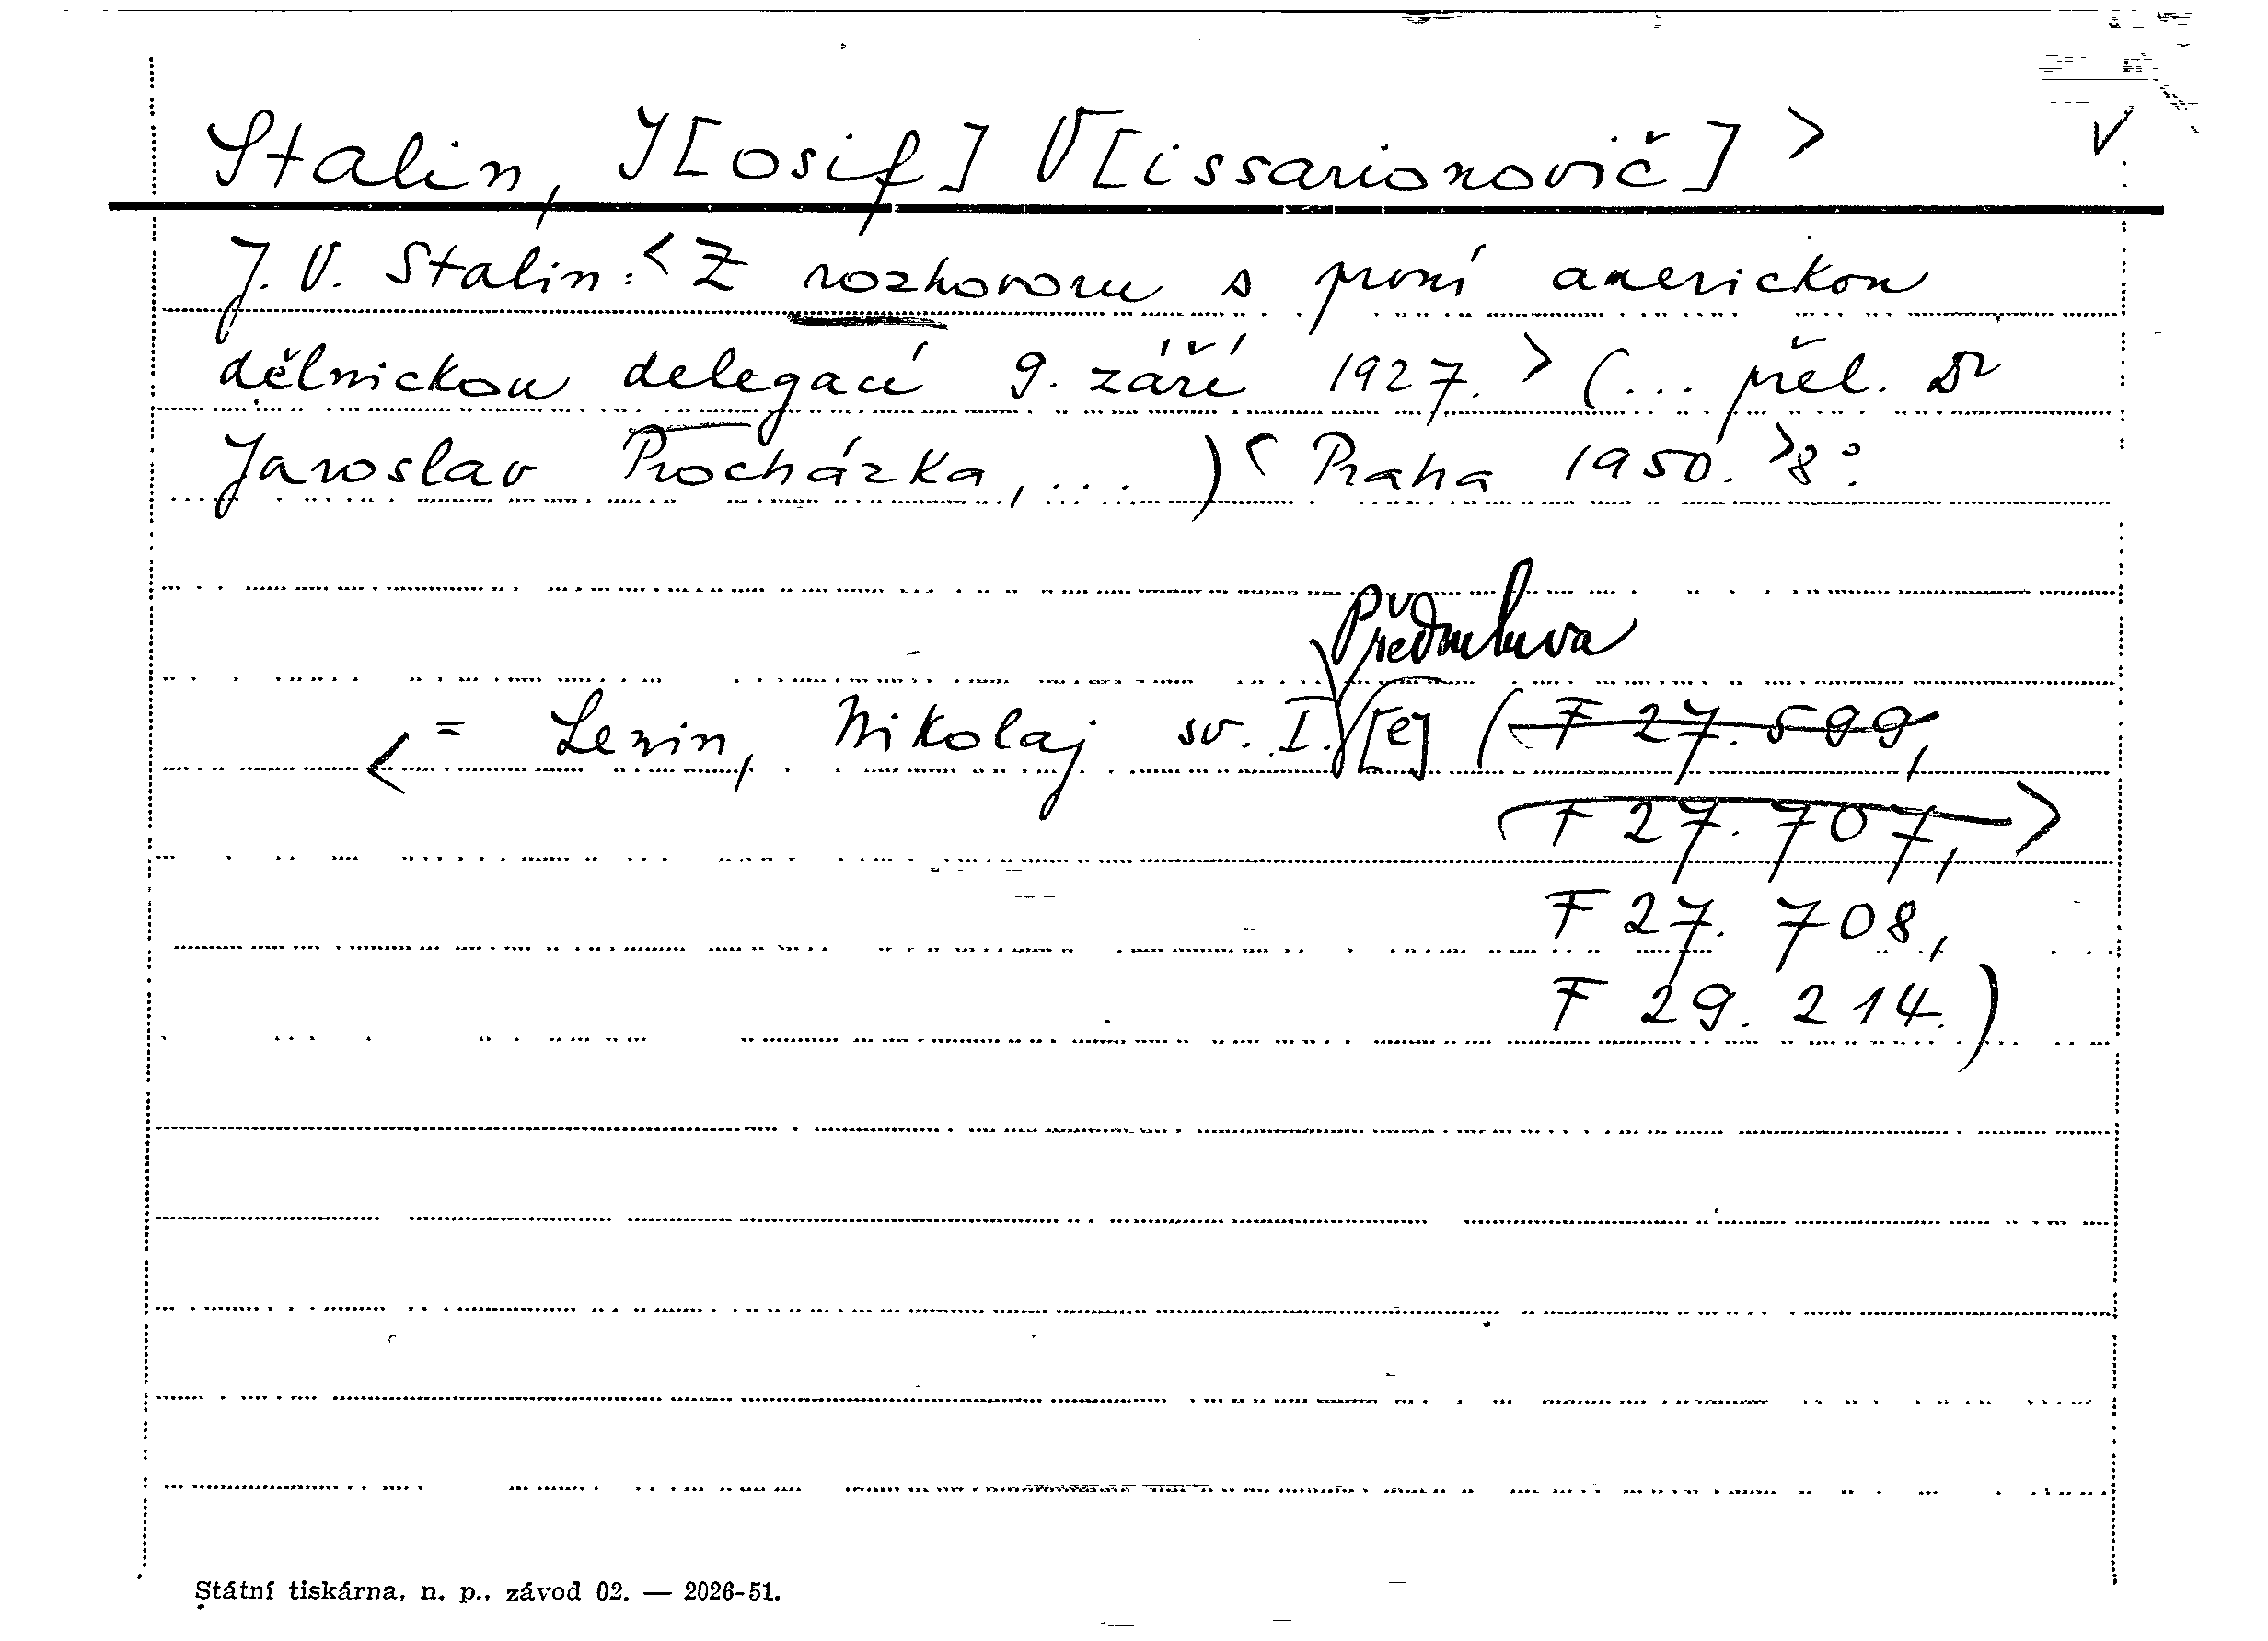 Stalin, J[osif] V[issarionovič] > V
J. V. Stalin: <Z rozhovoru s první americkou
dělnickou delegací 9. září 1927.> (... přel. Dr
Jaroslav Procházka, ...) <Praha 1950.> 8°.
Předmluva
< = Lenin, Nikolaj sv. I. [e] (F 27.599,
F 27.707, >
F 27.708,
F 29.214.)
Státní tiskárna, n. p., závod 02. — 2026-51.